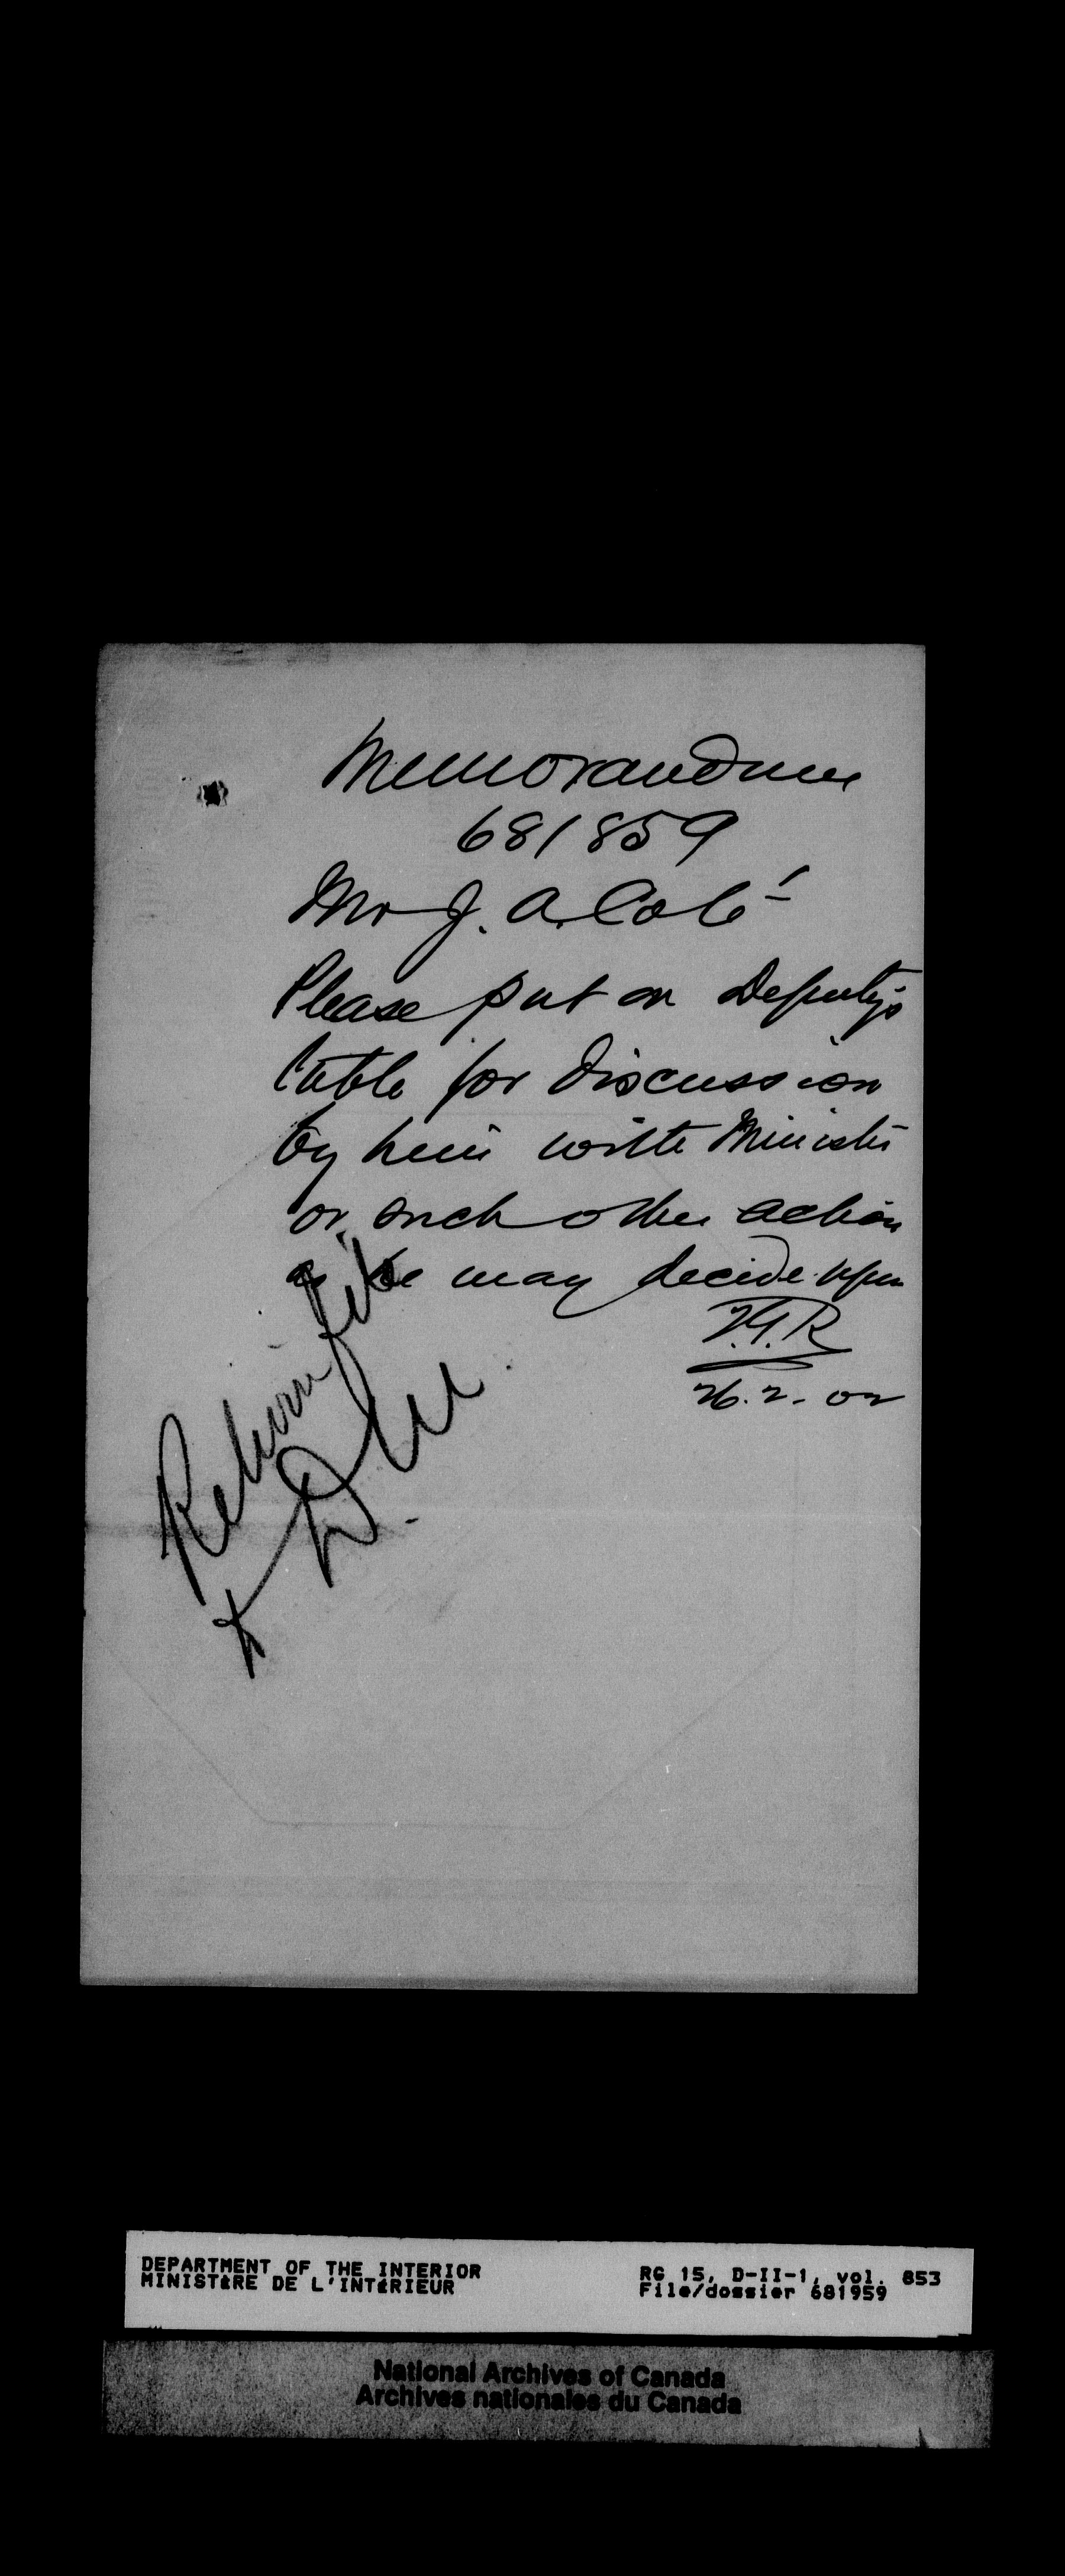 Memorandum
681859
Mr J. A. Coté
Please put on Deputy's
table for discussion
by him with Minister
or such other action
as he may decide upon
26.2.02
Return file
DEPARTMENT OF THE INTERIOR
MINISTÈRE DE L'INTÉRIEUR
RG 15, D-II-1, vol. 853
File/dossier 681959
National Archives of Canada
Archives nationales du Canada